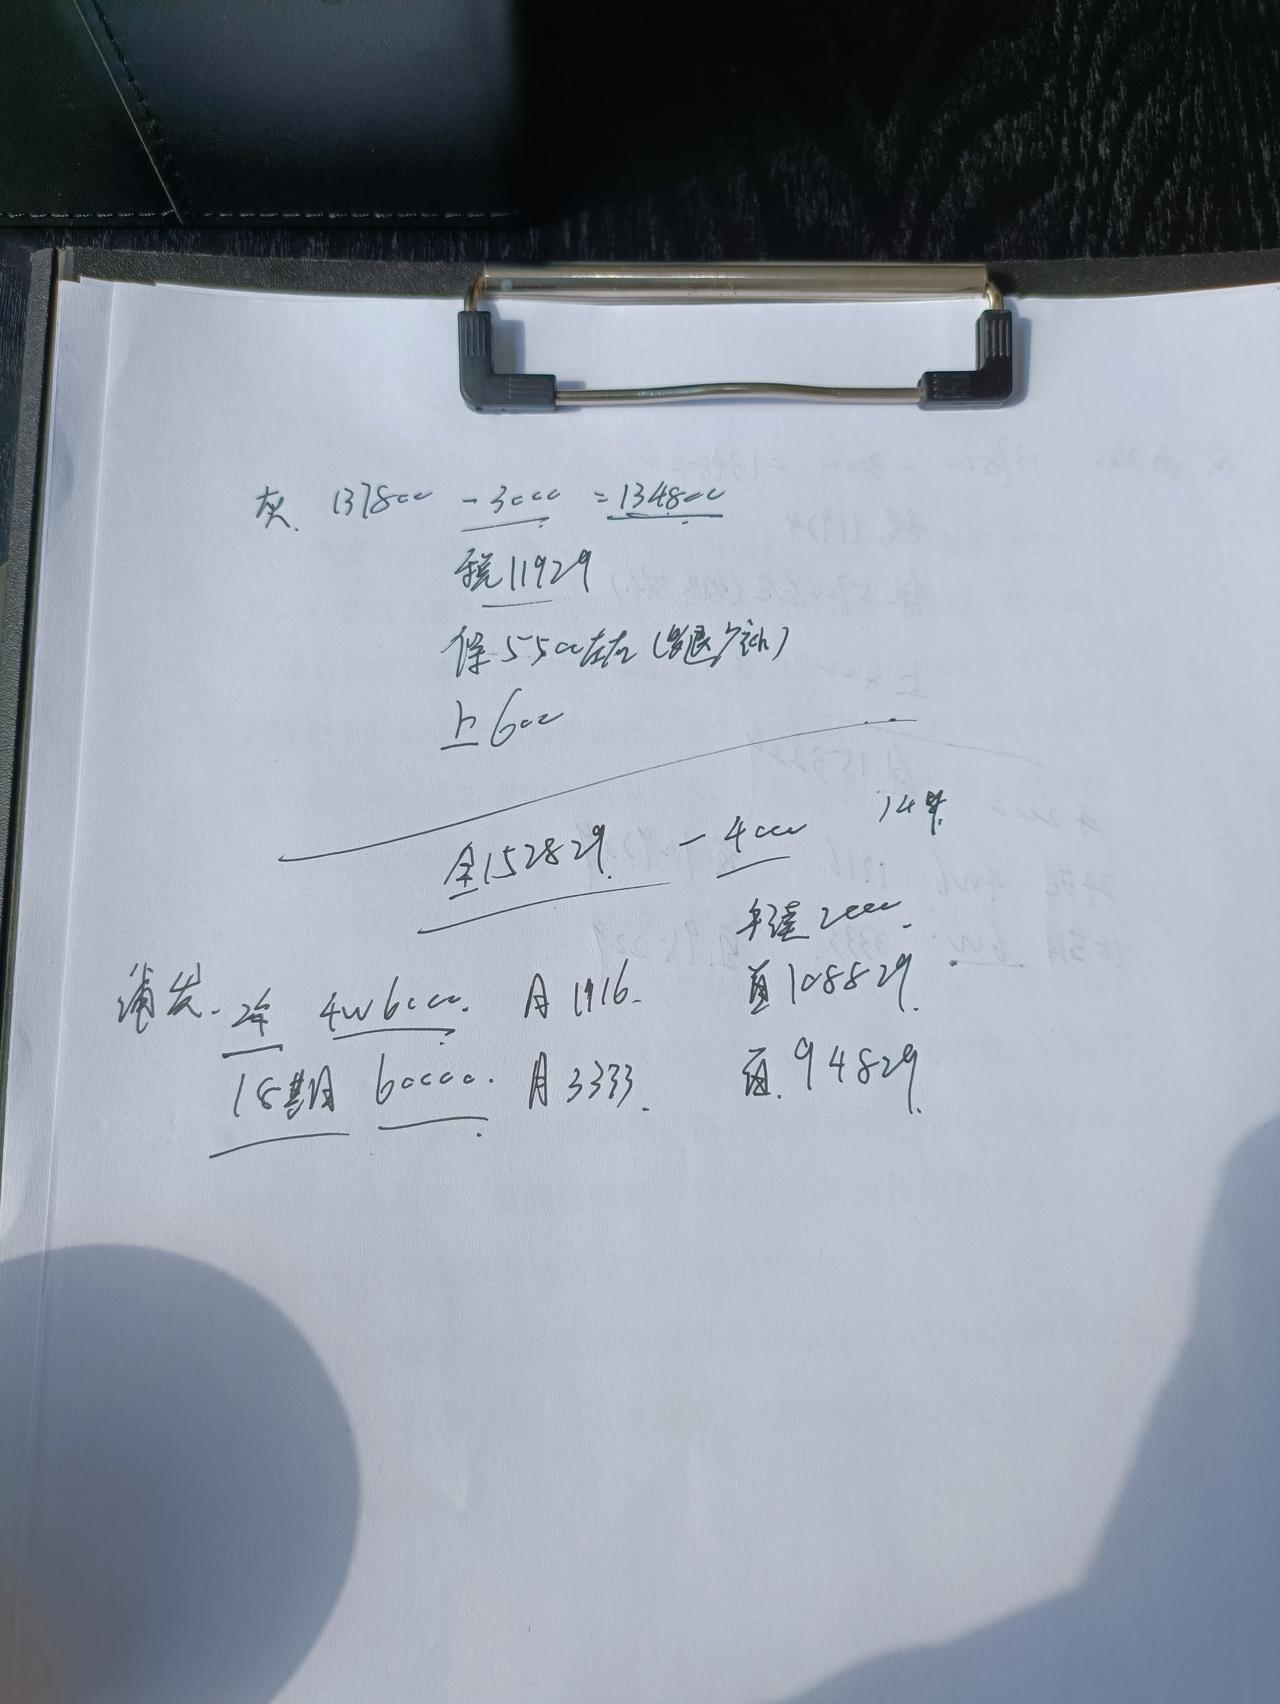 灰 137800 - 3000 = 134800
税11929
保5500左右(多退少补)
上600
全152829 - 4000
14年
2000
浦发 2年 4w6000 月1916
首108829
18期 60000 月3333
首94829